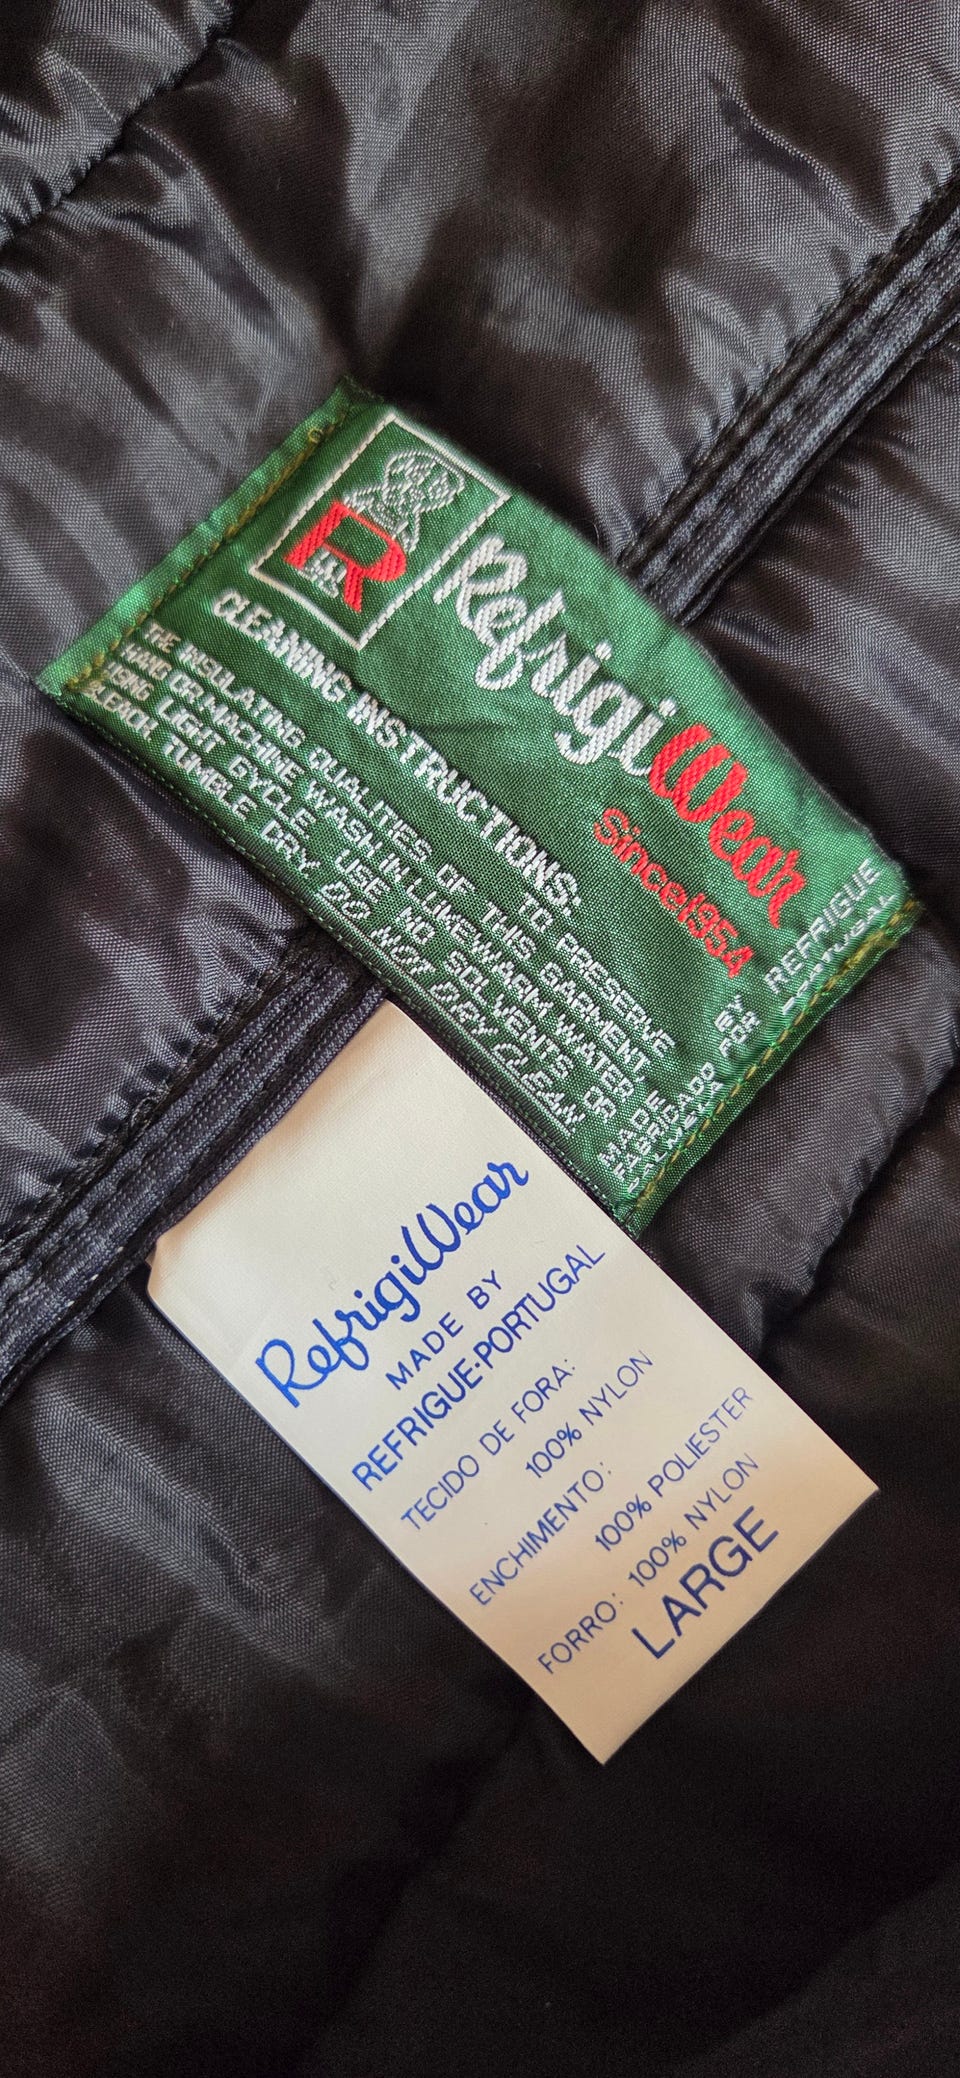 R
RefrigiWear
Since1954
CLEANING INSTRUCTIONS:
THE INSULATING QUALITIES OF THIS GARMENT.
HAND OR MACHINE WASH IN LUKEWARM WATER
USING LIGHT CYCLE. USE NO SOLVENTS OR
BLEACH TUMBLE DRY. DO NOT DRY CLEAN
TO PRESERVE
MADE BY REFRIGUE
FABRICADO FOR PORTUGAL
RefrigiWear
MADE BY
REFRIGUE·PORTUGAL
TECIDO DE FORA:
100% NYLON
ENCHIMENTO:
100% POLIESTER
FORRO: 100% NYLON
LARGE